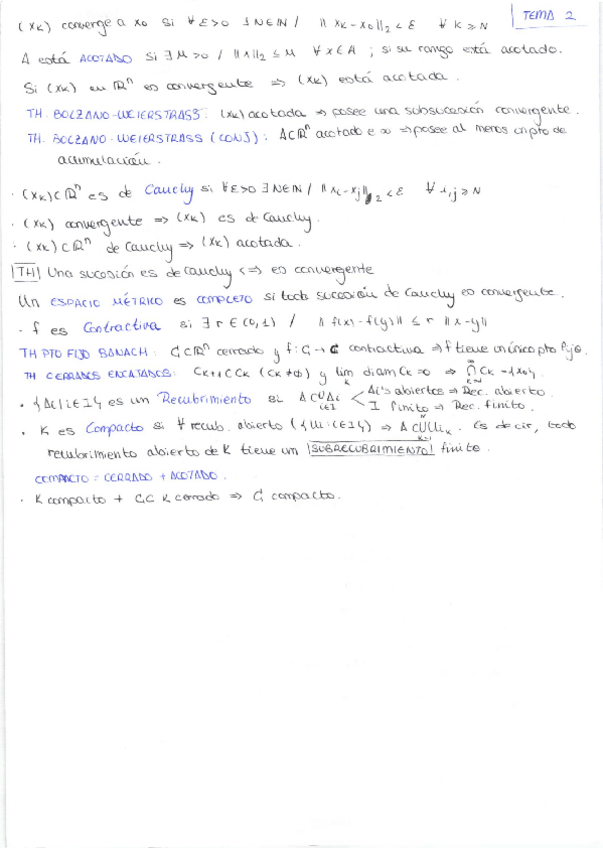 TEMA 2
(xₖ) converge a x₀ si ∀ε>0 ∃N∈ℕ / ‖xₖ-x₀‖₂<ε ∀k≥N
A está ACOTADO si ∃M>0 / ‖x‖₂≤M ∀x∈A ; si su rango está acotado.
Si (xₖ) en ℝⁿ es convergente ⇒ (xₖ) está acotada.
TH. BOLZANO-WEIERSTRASS: (xₖ) acotada ⇒ posee una subsucesión convergente.
TH. BOLZANO-WEIERSTRASS (CONJ): A⊂ℝⁿ acotado e ∞ ⇒ posee al menos un pto de
acumulación.
· (xₖ)⊂ℝⁿ es de Cauchy si ∀ε>0 ∃N∈ℕ / ‖xᵢ-xⱼ‖₂<ε ∀i,j≥N
· (xₖ) convergente ⇒ (xₖ) es de Cauchy.
· (xₖ)⊂ℝⁿ de Cauchy ⇒ (xₖ) acotada.
|TH| Una sucesión es de Cauchy <=> es convergente
Un ESPACIO MÉTRICO es COMPLETO si toda sucesión de Cauchy es convergente.
· f es Contractiva si ∃r∈(0,1) / ‖f(x)-f(y)‖ ≤ r ‖x-y‖
TH PTO FIJO BANACH: C⊂ℝⁿ cerrado y f: C→C contractiva ⇒ f tiene un único pto fijo.
TH CERRADOS ENCAJADOS: Cₖ₊₁⊂Cₖ (Cₖ≠∅) y lim diam Cₖ=0 ⇒ ∩Cₖ={x₀}.
· {Ai / i∈I} es un Recubrimiento si A⊂∪Ai < Ai's abiertos ⇒ Rec. abierto. I finito ⇒ Rec. finito.
· K es Compacto si ∀ recub. abierto ({Ui: i∈I}) ⇒ A⊂∪Uiₖ. Es decir, todo
recubrimiento abierto de K tiene un |SUBRECUBRIMIENTO| finito.
COMPACTO = CERRADO + ACOTADO.
· K compacto + C⊂K cerrado ⇒ C compacto.